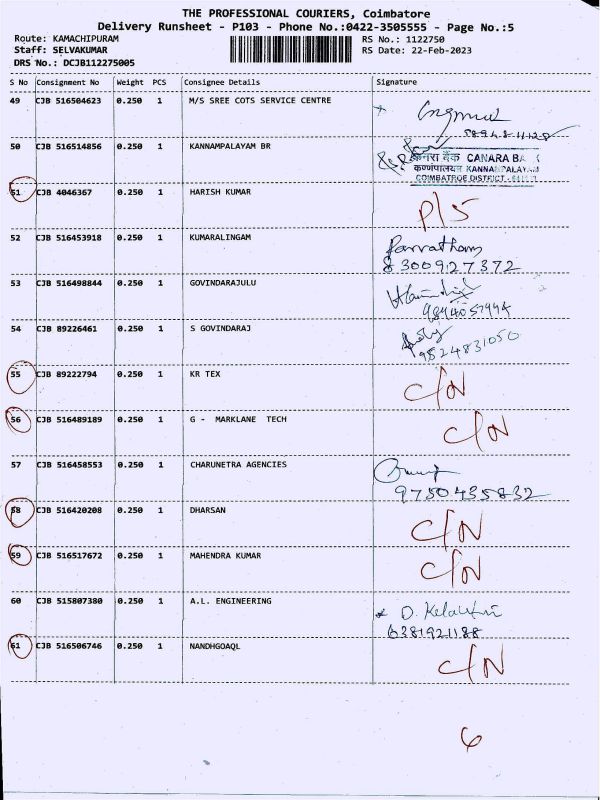 THE PROFESSIONAL COURIERS, Coimbatore
Delivery Runsheet - P103 - Phone No.:0422-3505555 - Page No.:5
Route: KAMACHIPURAM RS No.: 1122750
Staff: SELVAKUMAR RS Date: 22-Feb-2023
DRS No.: DCJB112275005
S No Consignment No Weight PCS Consignee Details Signature
49 CJB 516504623 0.250 1 M/S SREE COTS SERVICE CENTRE
50 CJB 516514856 0.250 1 KANNAMPALAYAM BR
केनरा बैंक CANARA BA
कण्णंपालयम KANNAMPALAYAM
COIMBATROE DISTRICT
51 CJB 4046367 0.250 1 HARISH KUMAR P/S
52 CJB 516453918 0.250 1 KUMARALINGAM Parvatham
8300927372
53 CJB 516498844 0.250 1 GOVINDARAJULU
54 CJB 89226461 0.250 1 S GOVINDARAJ
9524831050
55 CJB 89222794 0.250 1 KR TEX C/N
56 CJB 516489189 0.250 1 G - MARKLANE TECH C/N
57 CJB 516458553 0.250 1 CHARUNETRA AGENCIES
9750435832
58 CJB 516420208 0.250 1 DHARSAN C/N
59 CJB 516517672 0.250 1 MAHENDRA KUMAR C/N
60 CJB 515807380 0.250 1 A.L. ENGINEERING
6381921188
61 CJB 516506746 0.250 1 NANDHGOAQL C/N
6